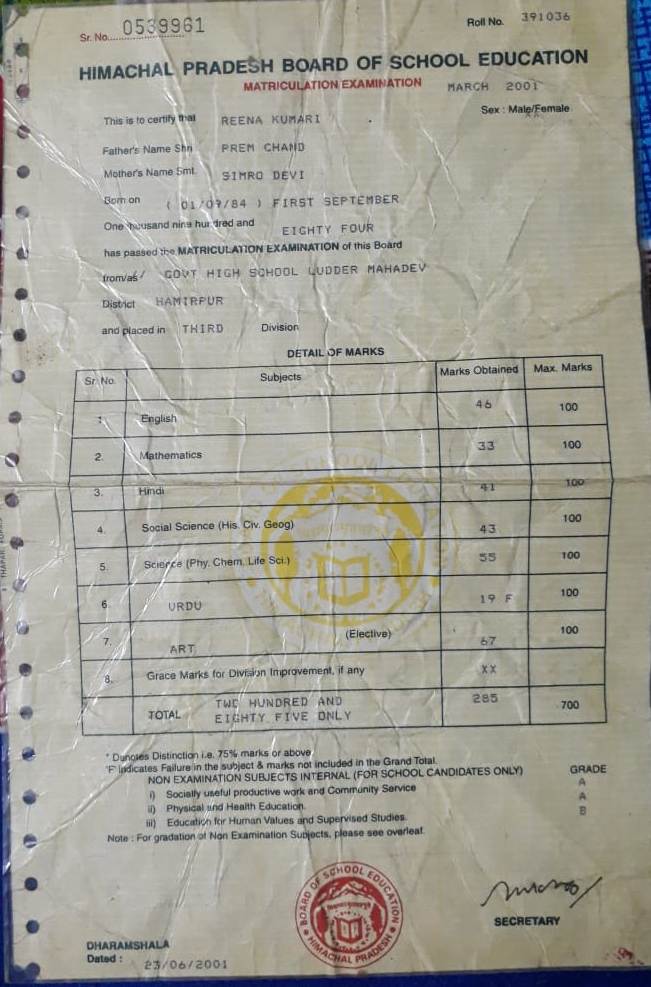 Sr. No. 0539961
Roll No. 391036
HIMACHAL PRADESH BOARD OF SCHOOL EDUCATION
MATRICULATION EXAMINATION MARCH 2001
Sex : Male/Female
This is to certify that REENA KUMARI
Father's Name Shri PREM CHAND
Mother's Name Smt. SIMRO DEVI
Born on ( 01/09/84 ) FIRST SEPTEMBER
One thousand nine hundred and EIGHTY FOUR
has passed the MATRICULATION EXAMINATION of this Board
from/as GOVT HIGH SCHOOL LUDDER MAHADEV
District HAMIRPUR
and placed in THIRD Division
DETAIL OF MARKS
Sr. No. Subjects Marks Obtained Max. Marks
1. English 46 100
2. Mathematics 33 100
3. Hindi 41 100
4. Social Science (His. Civ. Geog) 43 100
5. Science (Phy. Chem. Life Sci.) 55 100
6. URDU 19 F 100
7. ART (Elective) 67 100
8. Grace Marks for Division Improvement, if any XX
TOTAL TWO HUNDRED AND EIGHTY FIVE ONLY 285 700
* Dunotes Distinction i.e. 75% marks or above.
'F' Indicates Failure in the subject & marks not included in the Grand Total.
NON EXAMINATION SUBJECTS INTERNAL (FOR SCHOOL CANDIDATES ONLY) GRADE
i) Socially useful productive work and Community Service A
ii) Physical and Health Education. A
iii) Education for Human Values and Supervised Studies. B
Note : For gradation of Non Examination Subjects, please see overleaf.
BOARD OF SCHOOL EDUCATION
HIMACHAL PRADESH
SECRETARY
DHARAMSHALA
Dated : 23/06/2001